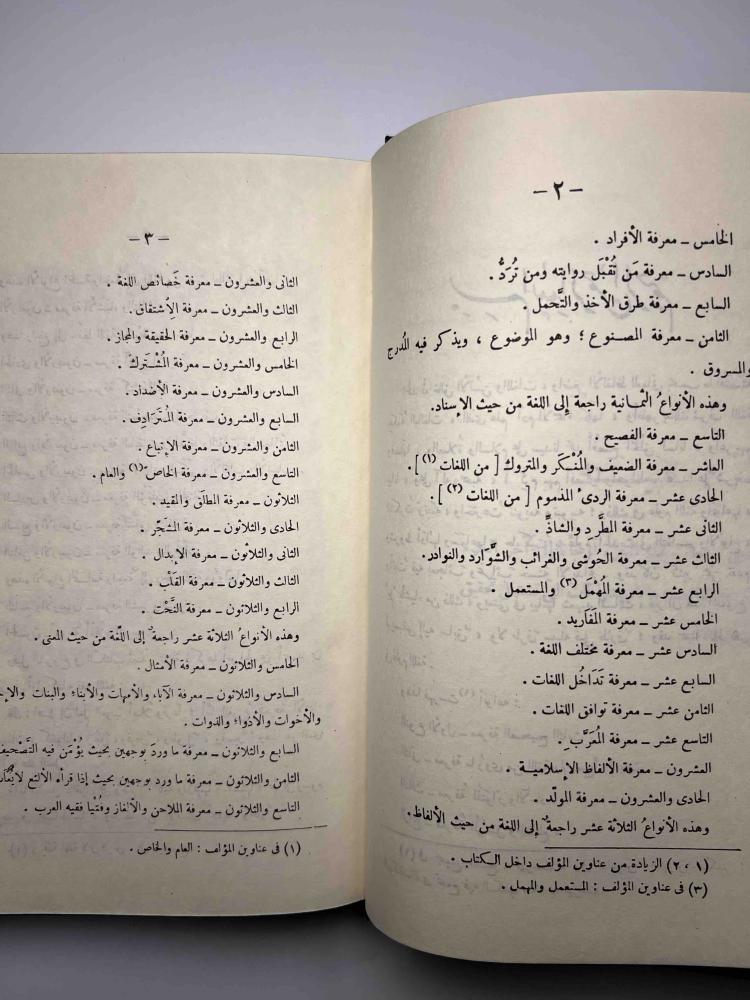 — ٢ —
الخامس — معرفة الأفراد .
السادس — معرفة مَن تُقْبَل روايته ومن تُرَدُّ .
السابع — معرفة طرق الأخذ والتَّحمل .
الثامن — معرفة المصنوع ؛ وهو الموضوع ، ويذكر فيه المُدرج
والمسروق .
وهذه الأنواعُ الثمانية راجعة إِلى اللغة من حيث الإسناد.
التاسع — معرفة الفصيح .
العاشر — معرفة الضعيف والمُنْكَر والمتروك [ من اللغات (١) ] .
الحادى عشر — معرفة الردىء المذموم [ من اللغات (٢) ] .
الثانى عشر — معرفة المطَّرِد والشاذِّ .
الثالث عشر — معرفة الحُوشى والغرائب والشَّوَارد والنوادر.
الرابع عشر — معرفة المُهْمَل (٣) والمستعمل .
الخامس عشر — معرفة المَفَاريد .
السادس عشر — معرفة مختلف اللغة .
السابع عشر — معرفة تَدَاخُل اللغات .
الثامن عشر — معرفة توافق اللغات .
التاسع عشر — معرفة المُعَرَّبِ .
العشرون — معرفة الألفاظ الإسلامية .
الحادى والعشرون — معرفة المولّد .
وهذه الأنواعُ الثلاثة عشر راجعةٌ إِلى اللغة من حيث الألفاظ.
(١ ، ٢) الزيادة من عناوين المؤلف داخل الكتاب .
(٣) فى عناوين المؤلف : المستعمل والمهمل .
— ٣ —
الثانى والعشرون — معرفة خَصائص اللغة .
الثالث والعشرون — معرفة الاِشتقاق .
الرابع والعشرون — معرفة الحقيقة والمجاز .
الخامس والعشرون — معرفة المُشْتَرك .
السادس والعشرون — معرفة الأضداد .
السابع والعشرون — معرفة المُتَرَادِف .
الثامن والعشرون — معرفة الإتباع .
التاسع والعشرون — معرفة الخاص (١) والعام .
الثلاثون — معرفة المطلَق والمقيد .
الحادى والثلاثون — معرفة المشجّر .
الثانى والثلاثون — معرفة الإبدال .
الثالث والثلاثون — معرفة القَلْب .
الرابع والثلاثون — معرفة النَّحْت .
وهذه الأنواعُ الثلاثة عشر راجعةٌ إلى اللّغة من حيث المعنى .
الخامس والثلاثون — معرفة الأمثال .
السادس والثلاثون — معرفة الآباء والأمهات والأبناء والبنات
والأخوات والأذواء والذوات .
السابع والثلاثون — معرفة ما وردَ بوجهين بحيث يُؤْمَن فيه التَّصْحيف
الثامن والثلاثون — معرفة ما ورد بوجهين بحيث إذا قرأه الألثغ
التاسع والثلاثون — معرفة الملاحن والألغاز وفُتْيا فقيه العرب .
(١) فى عناوين المؤلف : العام والخاص .